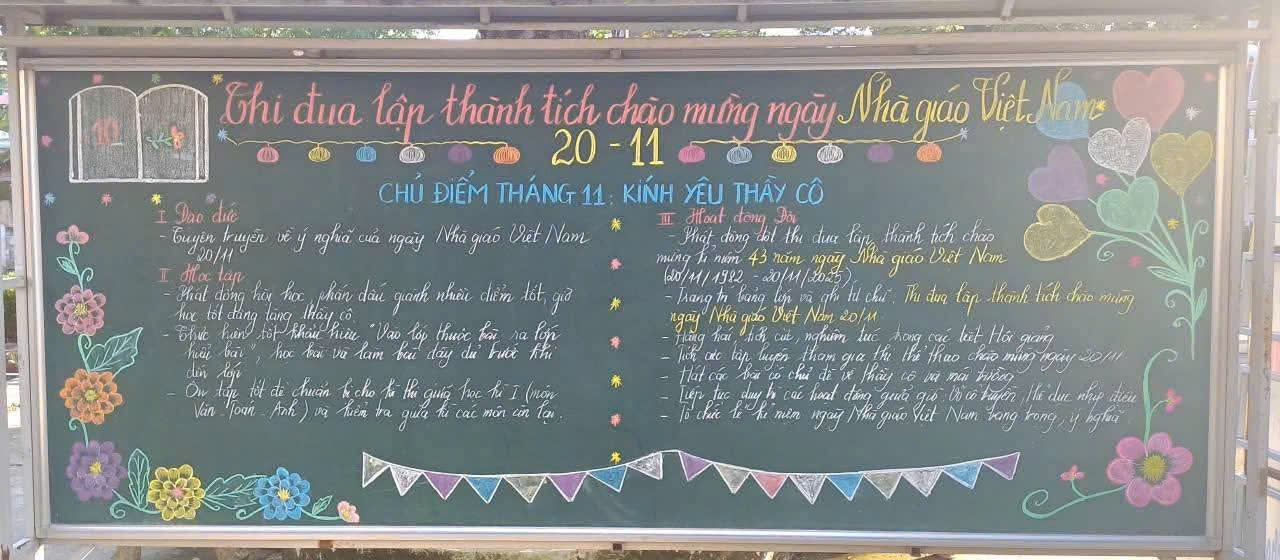 Thi đua lập thành tích chào mừng ngày Nhà giáo Việt Nam
20 - 11
CHỦ ĐIỂM THÁNG 11: KÍNH YÊU THẦY CÔ
I Đạo đức
- Tuyên truyền về ý nghĩa của ngày Nhà giáo Việt Nam
20/11
II Học tập
- Phát động hội học, phấn đấu giành nhiều điểm tốt, giờ
học tốt dâng tặng thầy cô.
- Thực hiện tốt khẩu hiệu "Vào lớp thuộc bài ra lớp
hiểu bài", học bài và làm bài đầy đủ trước khi
đến lớp
- Ôn tập tốt để chuẩn bị cho kì thi giữa học kì I (môn
Văn - Toán - Anh) và kiểm tra giữa kì các môn còn lại.
III Hoạt động Đội
- Phát động đợt thi đua lập thành tích chào
mừng kỉ niệm 43 năm ngày Nhà giáo Việt Nam
(20/11/1982 - 20/11/2025)
- Trang trí bảng lớp và ghi tít chữ: Thi đua lập thành tích chào mừng
ngày Nhà giáo Việt Nam 20/11
- Hăng hái, tích cực, nghiêm túc trong các tiết Hội giảng
- Tích cực tập luyện tham gia thi thể thao chào mừng ngày 20/11
- Hát các bài có chủ đề về thầy cô và mái trường
- Tiếp tục duy trì các hoạt động giữa giờ: Võ cổ truyền, thể dục nhịp điệu
- Tổ chức lễ kỉ niệm ngày Nhà giáo Việt Nam trang trọng, ý nghĩa